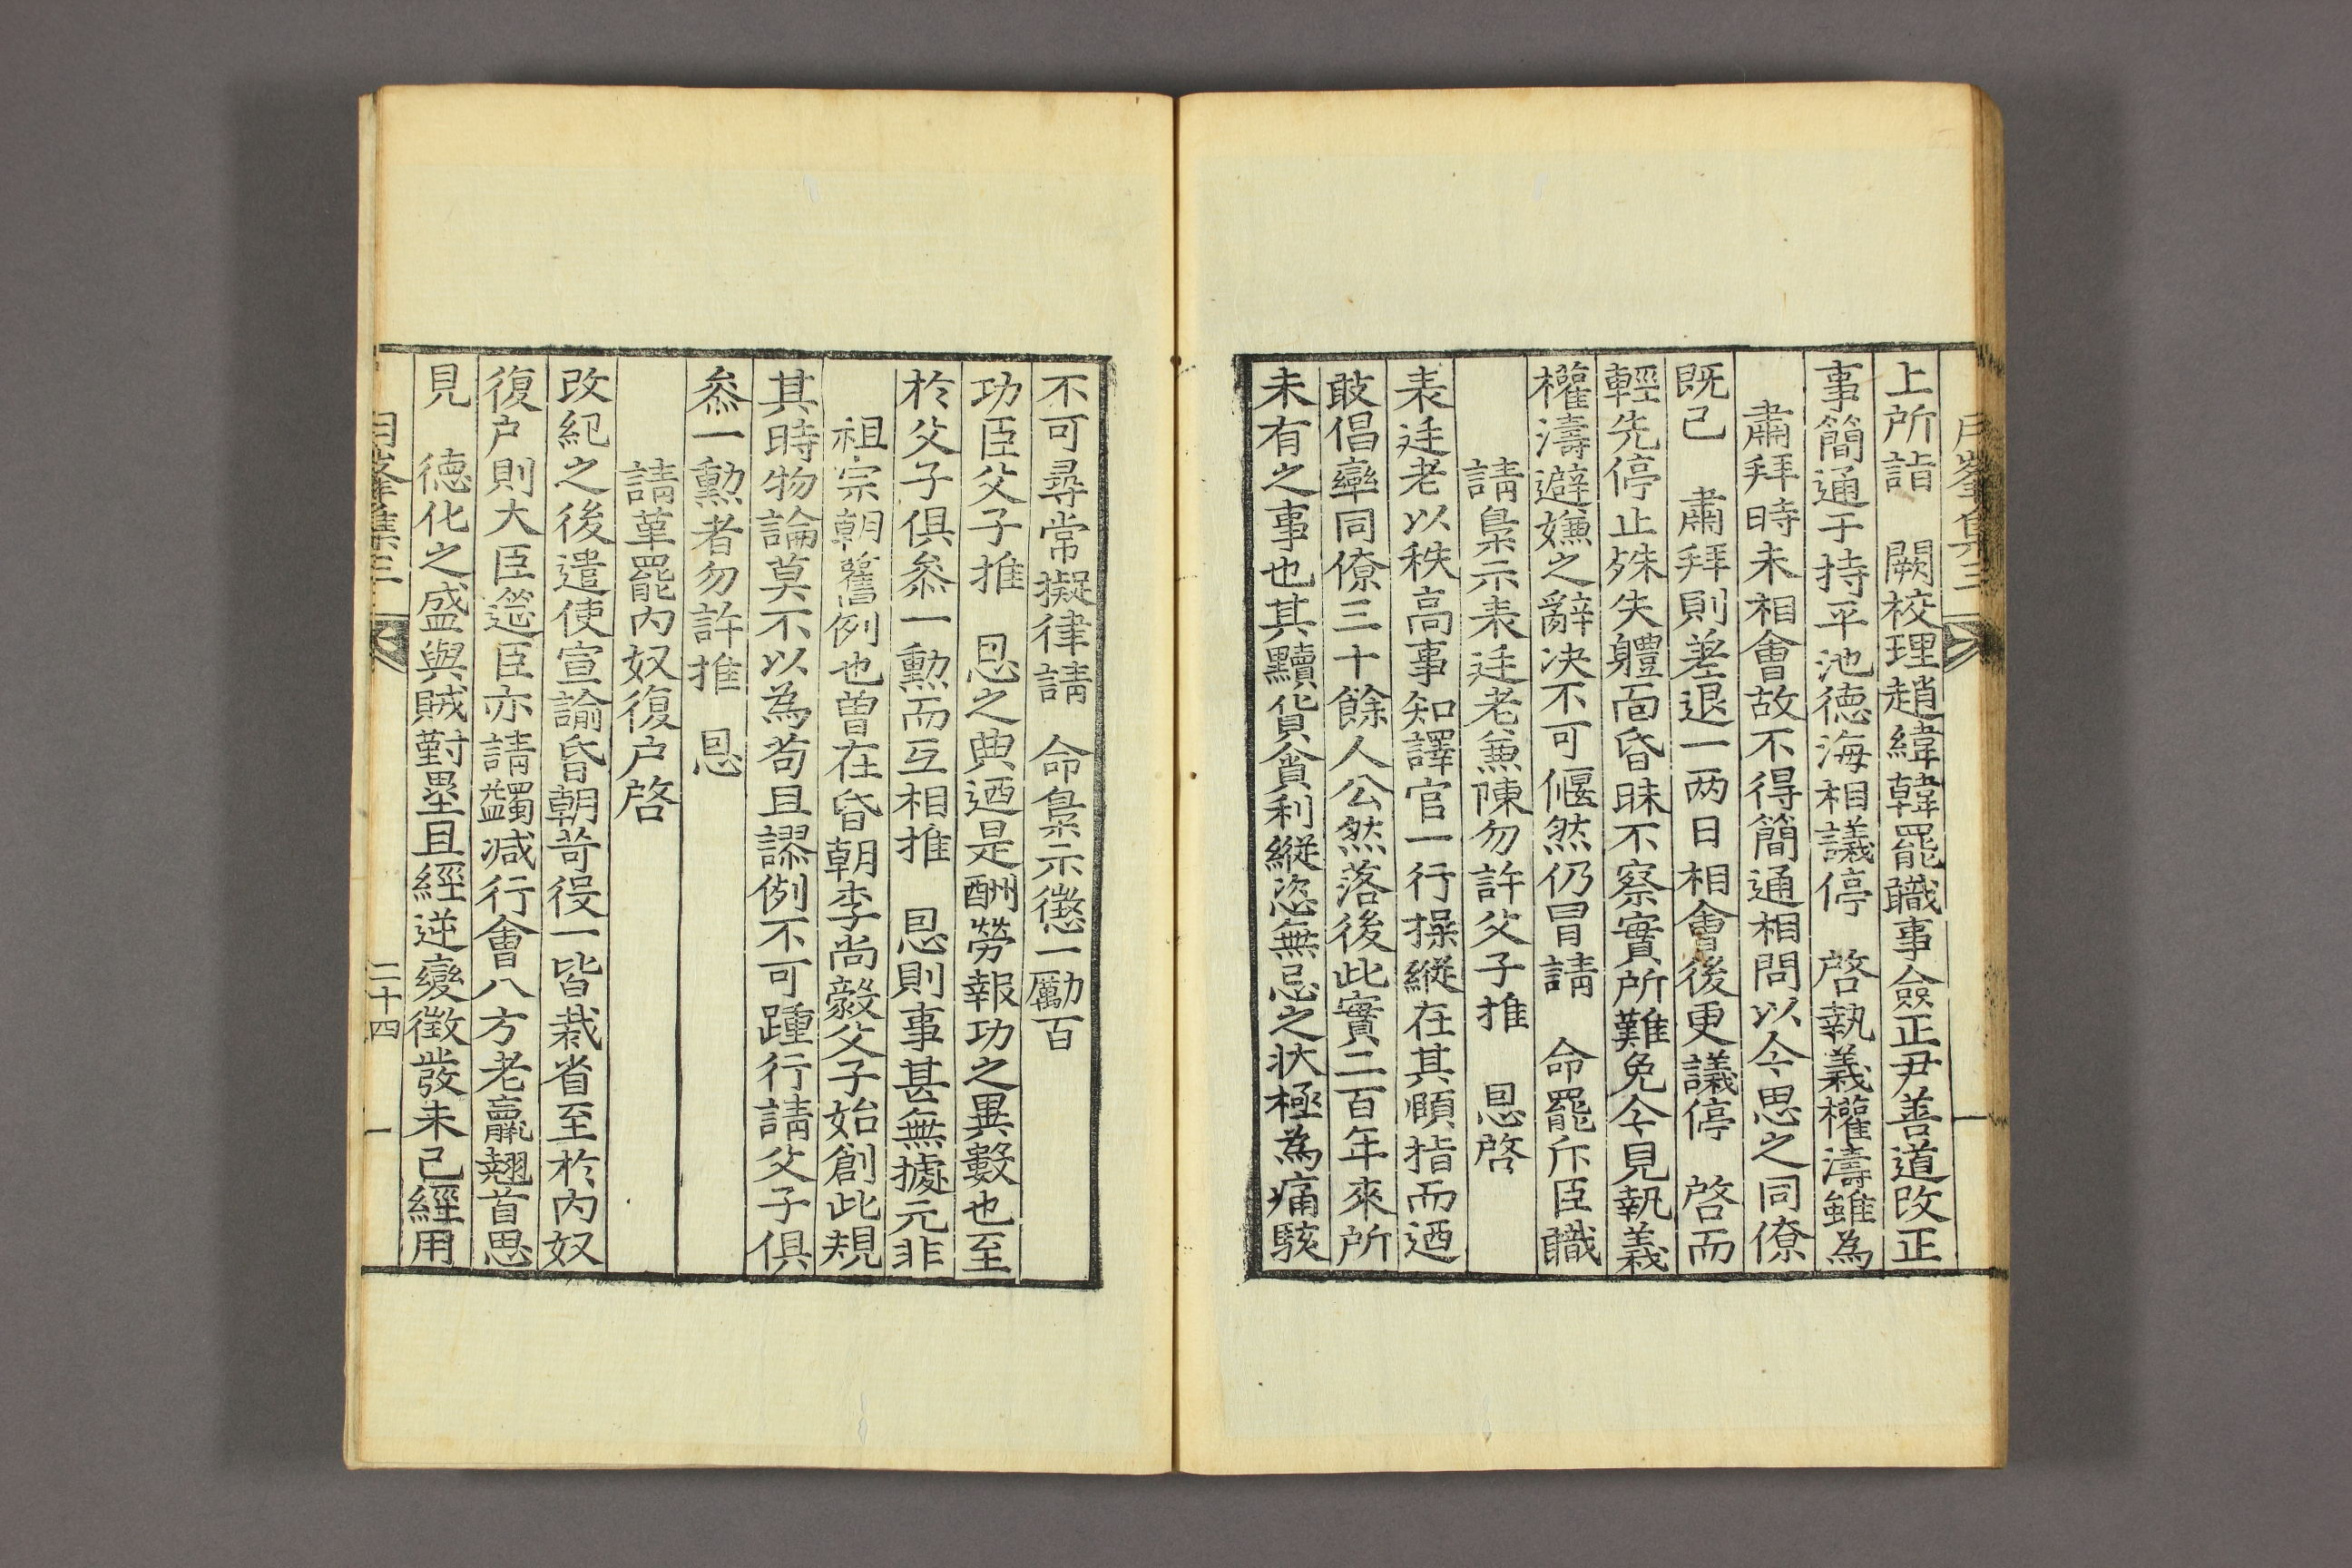 月峯集三
上所詣　闕校理趙緯韓罷職事僉正尹善道改正
事簡通于持平池德海相議停　啓執義權濤雖爲
肅拜時未相會故不得簡通相問以今思之同僚
既已　肅拜則差退一两日相會後更議停　啓而
輕先停止殊失軆面昏昧不察實所難免今見執義
權濤避嫌之辭决不可偃然仍冒請　命罷斥臣職
請梟示表廷老兼陳勿許父子推　恩啓
表廷老以秩高事知譯官一行操縱在其頤指而迺
敢倡率同僚三十餘人公然落後此實二百年來所
未有之事也其黷貨貪利縱恣無忌之状極為痛駭
不可尋常擬律請　命梟示懲一勵百
功臣父子推　恩之典迺是酬勞報功之異數也至
於父子俱叅一勳而互相推　恩則事甚無據元非
祖宗朝舊例也曾在昏朝李尚毅父子始創此規
其時物論莫不以為苟且謬例不可踵行請父子俱
叅一勳者勿許推　恩
請革罷內奴復户啓
改紀之後遣使宣諭昏朝苛役一皆裁省至於內奴
復户則大臣筵臣亦請蠲减行會八方老羸翹首思
見　德化之盛與賊對壘且經逆變徵發未已經用
月峯集三　二十四